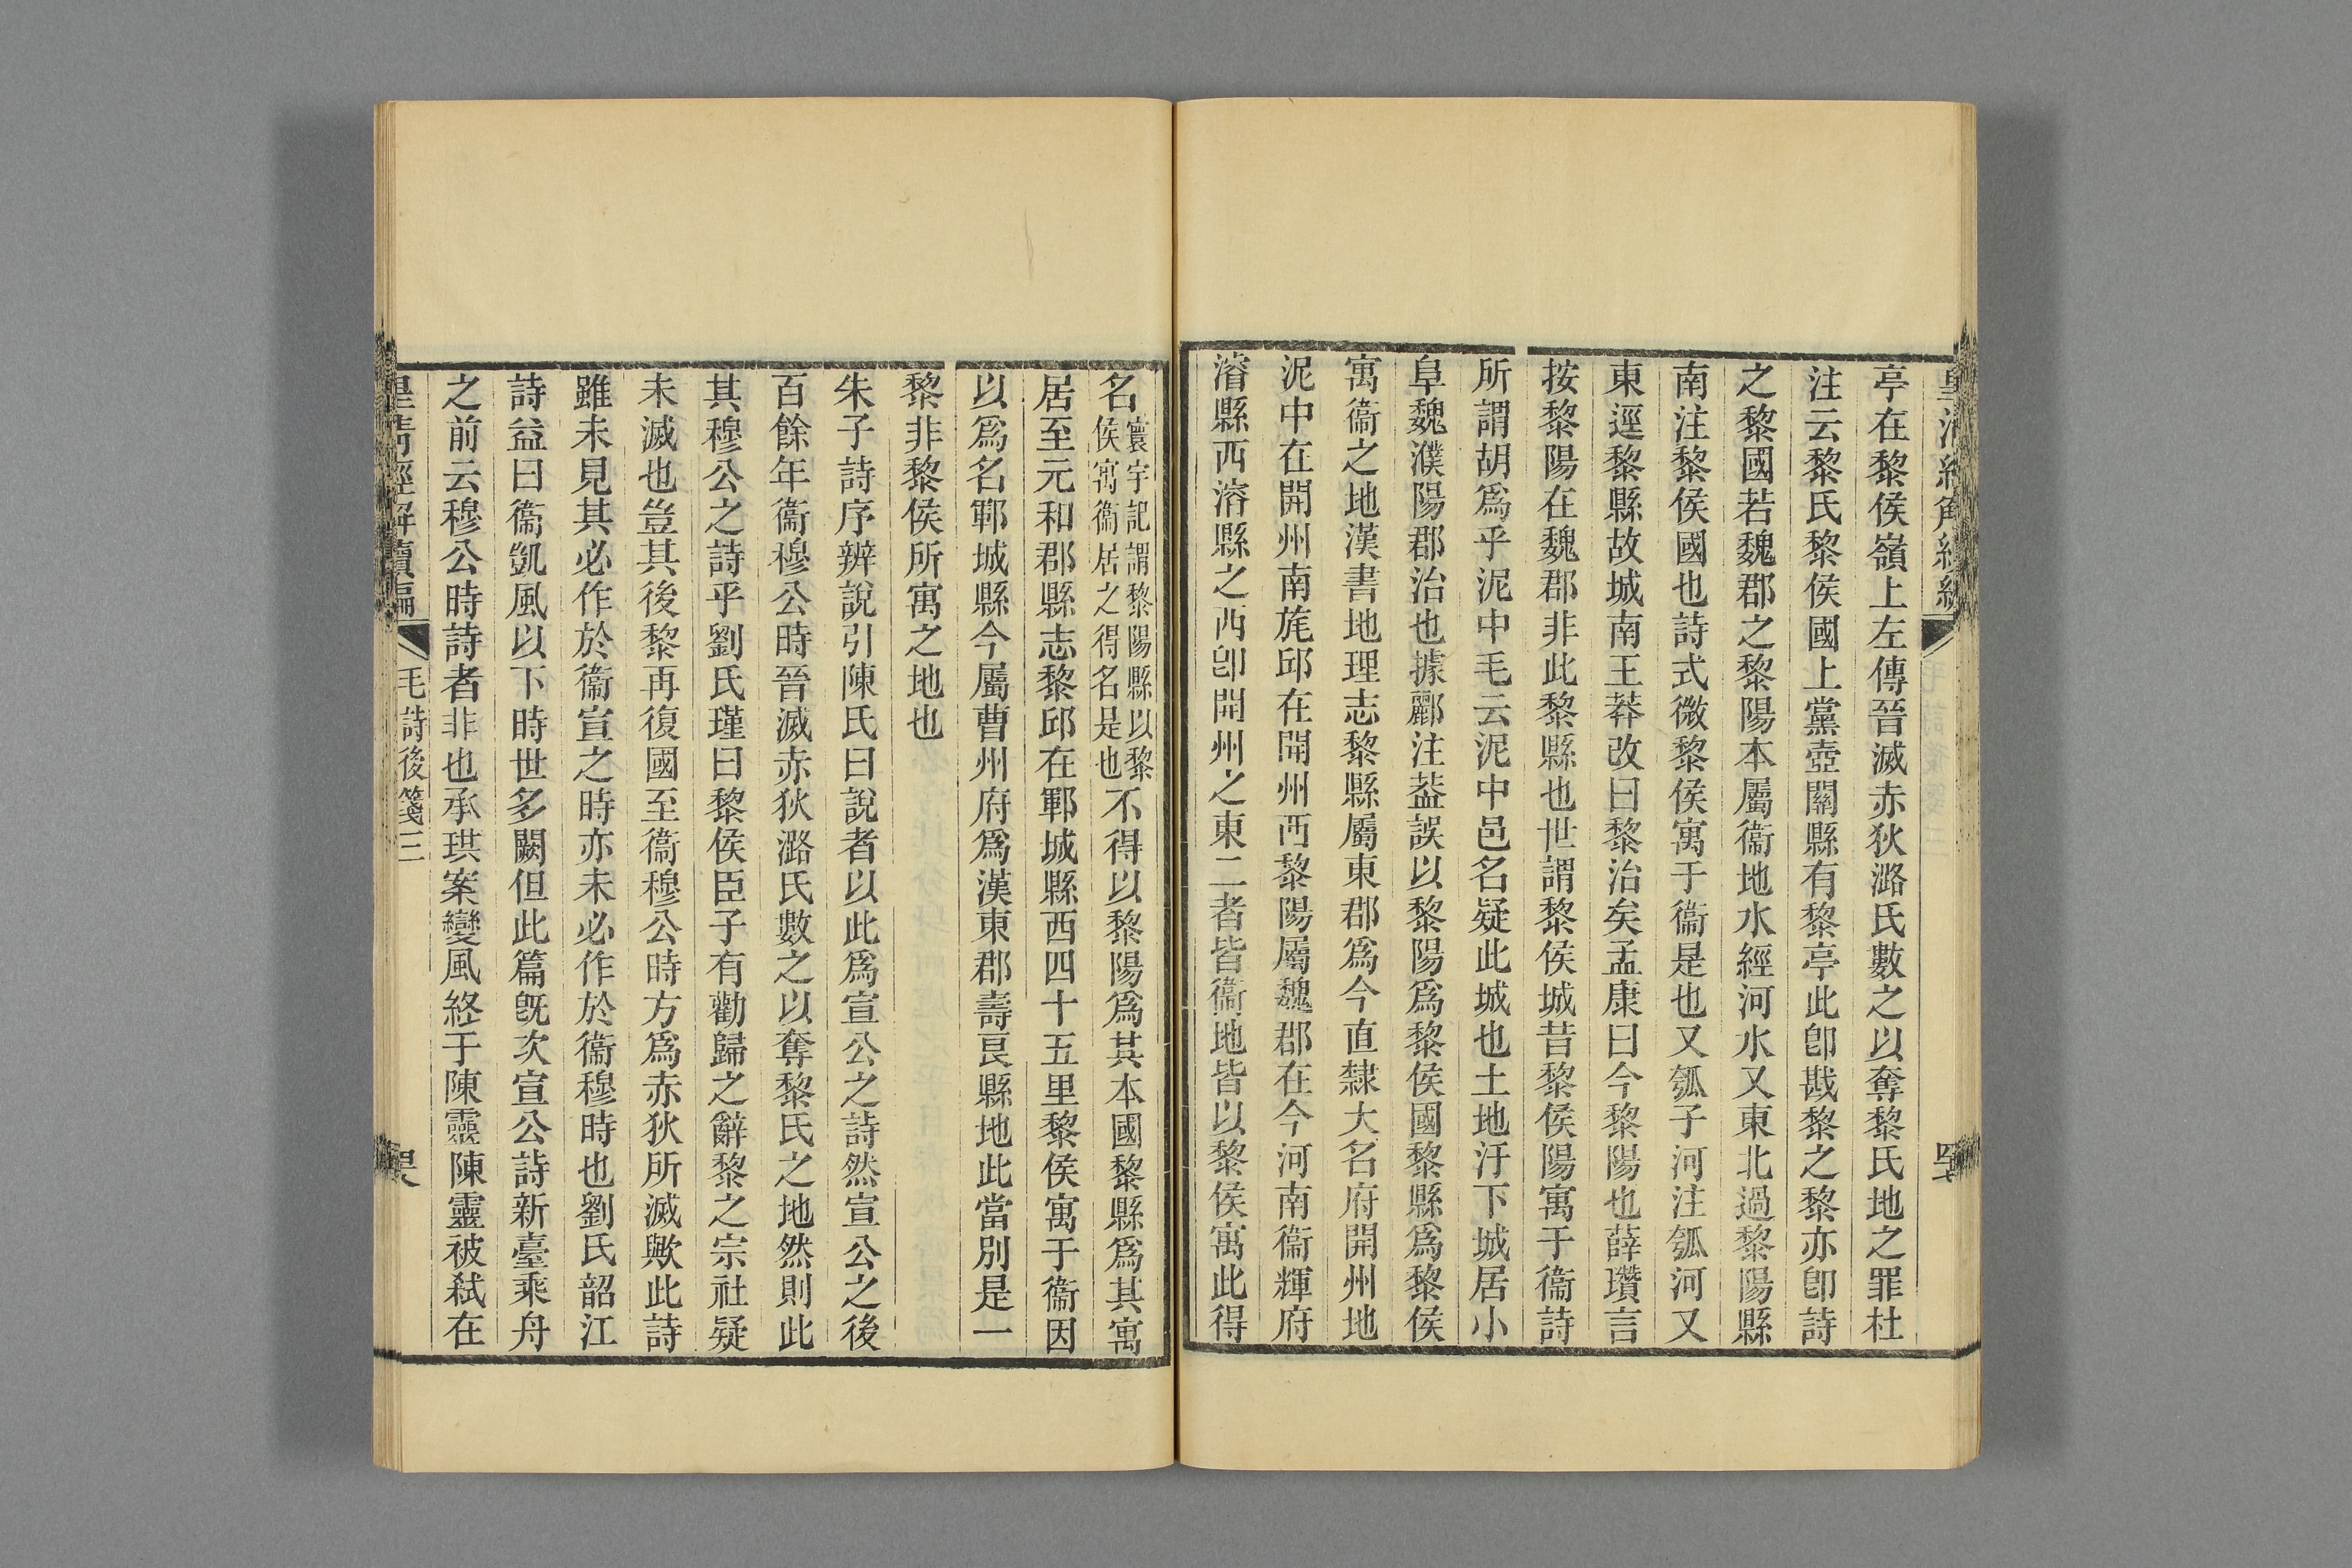 亭在黎侯嶺上左傳晉滅赤狄潞氏數之以奪黎氏地之罪杜
注云黎氏黎侯國上黨壺關縣有黎亭此卽戡黎之黎亦卽詩
之黎國若魏郡之黎陽本屬衞地水經河水又東北過黎陽縣
南注黎侯國也詩式微黎侯寓于衞是也又瓠子河注瓠河又
東逕黎縣故城南王莽改曰黎治矣孟康曰今黎陽也薛瓚言
按黎陽在魏郡非此黎縣也世謂黎侯城昔黎侯陽寓于衞詩
所謂胡爲乎泥中毛云泥中邑名疑此城也土地汙下城居小
阜魏濮陽郡治也據酈注葢誤以黎陽爲黎侯國黎縣爲黎侯
寓衞之地漢書地理志黎縣屬東郡爲今直隸大名府開州地
泥中在開州南旄邱在開州西黎陽屬魏郡在今河南衞輝府
濬縣西濬縣之西卽開州之東二者皆衞地皆以黎侯寓此得
名寰宇記謂黎陽縣以黎侯寓衞居之得名是也不得以黎陽爲其本國黎縣爲其寓
居至元和郡縣志黎邱在鄆城縣西四十五里黎侯寓于衞因
以爲名鄆城縣今屬曹州府爲漢東郡壽良縣地此當別是一
黎非黎侯所寓之地也
朱子詩序辨說引陳氏曰說者以此爲宣公之詩然宣公之後
百餘年衞穆公時晉滅赤狄潞氏數之以奪黎氏之地然則此
其穆公之詩乎劉氏瑾曰黎侯臣子有勸歸之辭黎之宗社疑
未滅也豈其後黎再復國至衞穆公時方爲赤狄所滅歟此詩
雖未見其必作於衞宣之時亦未必作於衞穆時也劉氏詔江
詩益曰衞凱風以下時世多闕但此篇旣次宣公詩新臺乘舟
之前云穆公時詩者非也承珙案變風終于陳靈陳靈被弑在
皇清經解續編 毛詩後箋三